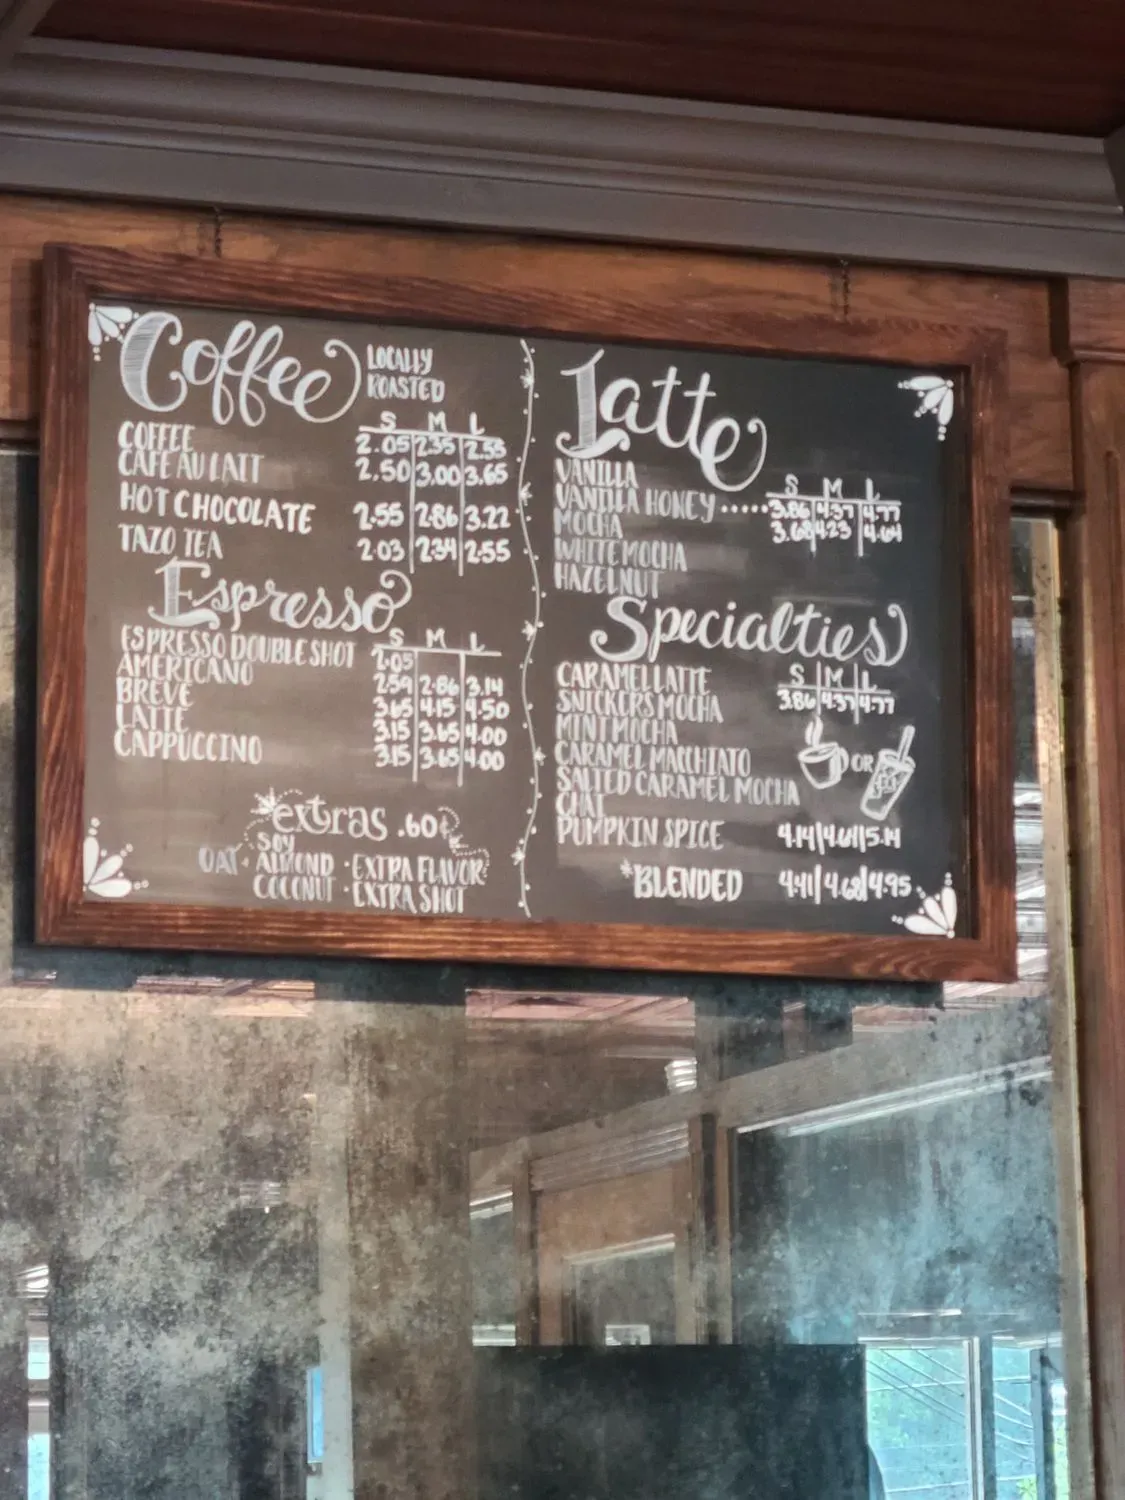 Coffee LOCALLY
ROASTED
S M L
COFFEE 2.05 2.35 2.55
CAFE AU LAIT 2.50 3.00 3.65
HOT CHOCOLATE 2.55 2.86 3.22
TAZO TEA 2.03 2.34 2.55
Espresso
S M L
ESPRESSO DOUBLE SHOT 2.05
AMERICANO 2.59 2.86 3.14
BREVE 3.65 4.15 4.50
LATTE 3.15 3.65 4.00
CAPPUCCINO 3.15 3.65 4.00
extras .60¢
SOY
OAT · ALMOND · EXTRA FLAVOR
COCONUT · EXTRA SHOT
Latte
S M L
VANILLA
VANILLA HONEY ..... 3.86 4.37 4.77
MOCHA 3.68 4.23 4.64
WHITE MOCHA
HAZELNUT
Specialties
S M L
CARAMEL LATTE 3.86 4.37 4.77
SNICKERS MOCHA
MINT MOCHA
CARAMEL MACCHIATO OR
SALTED CARAMEL MOCHA
CHAI
PUMPKIN SPICE 4.14 4.61 5.14
*BLENDED 4.41 4.68 4.95